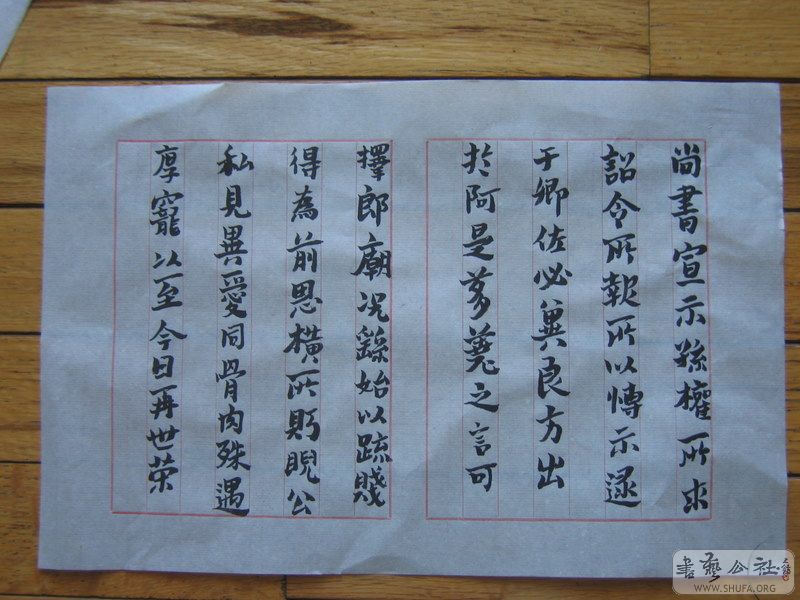 尚書宣示孫權所求
詔令所報所以博示逮
于卿佐必冀良方出
於阿是芻蕘之言可
擇郎廟况繇始以疏賤
得為前恩橫所䀢睨公
私見異愛同骨肉殊遇
厚寵以至今日再世榮
書藝公社
WWW.SHUFA.ORG